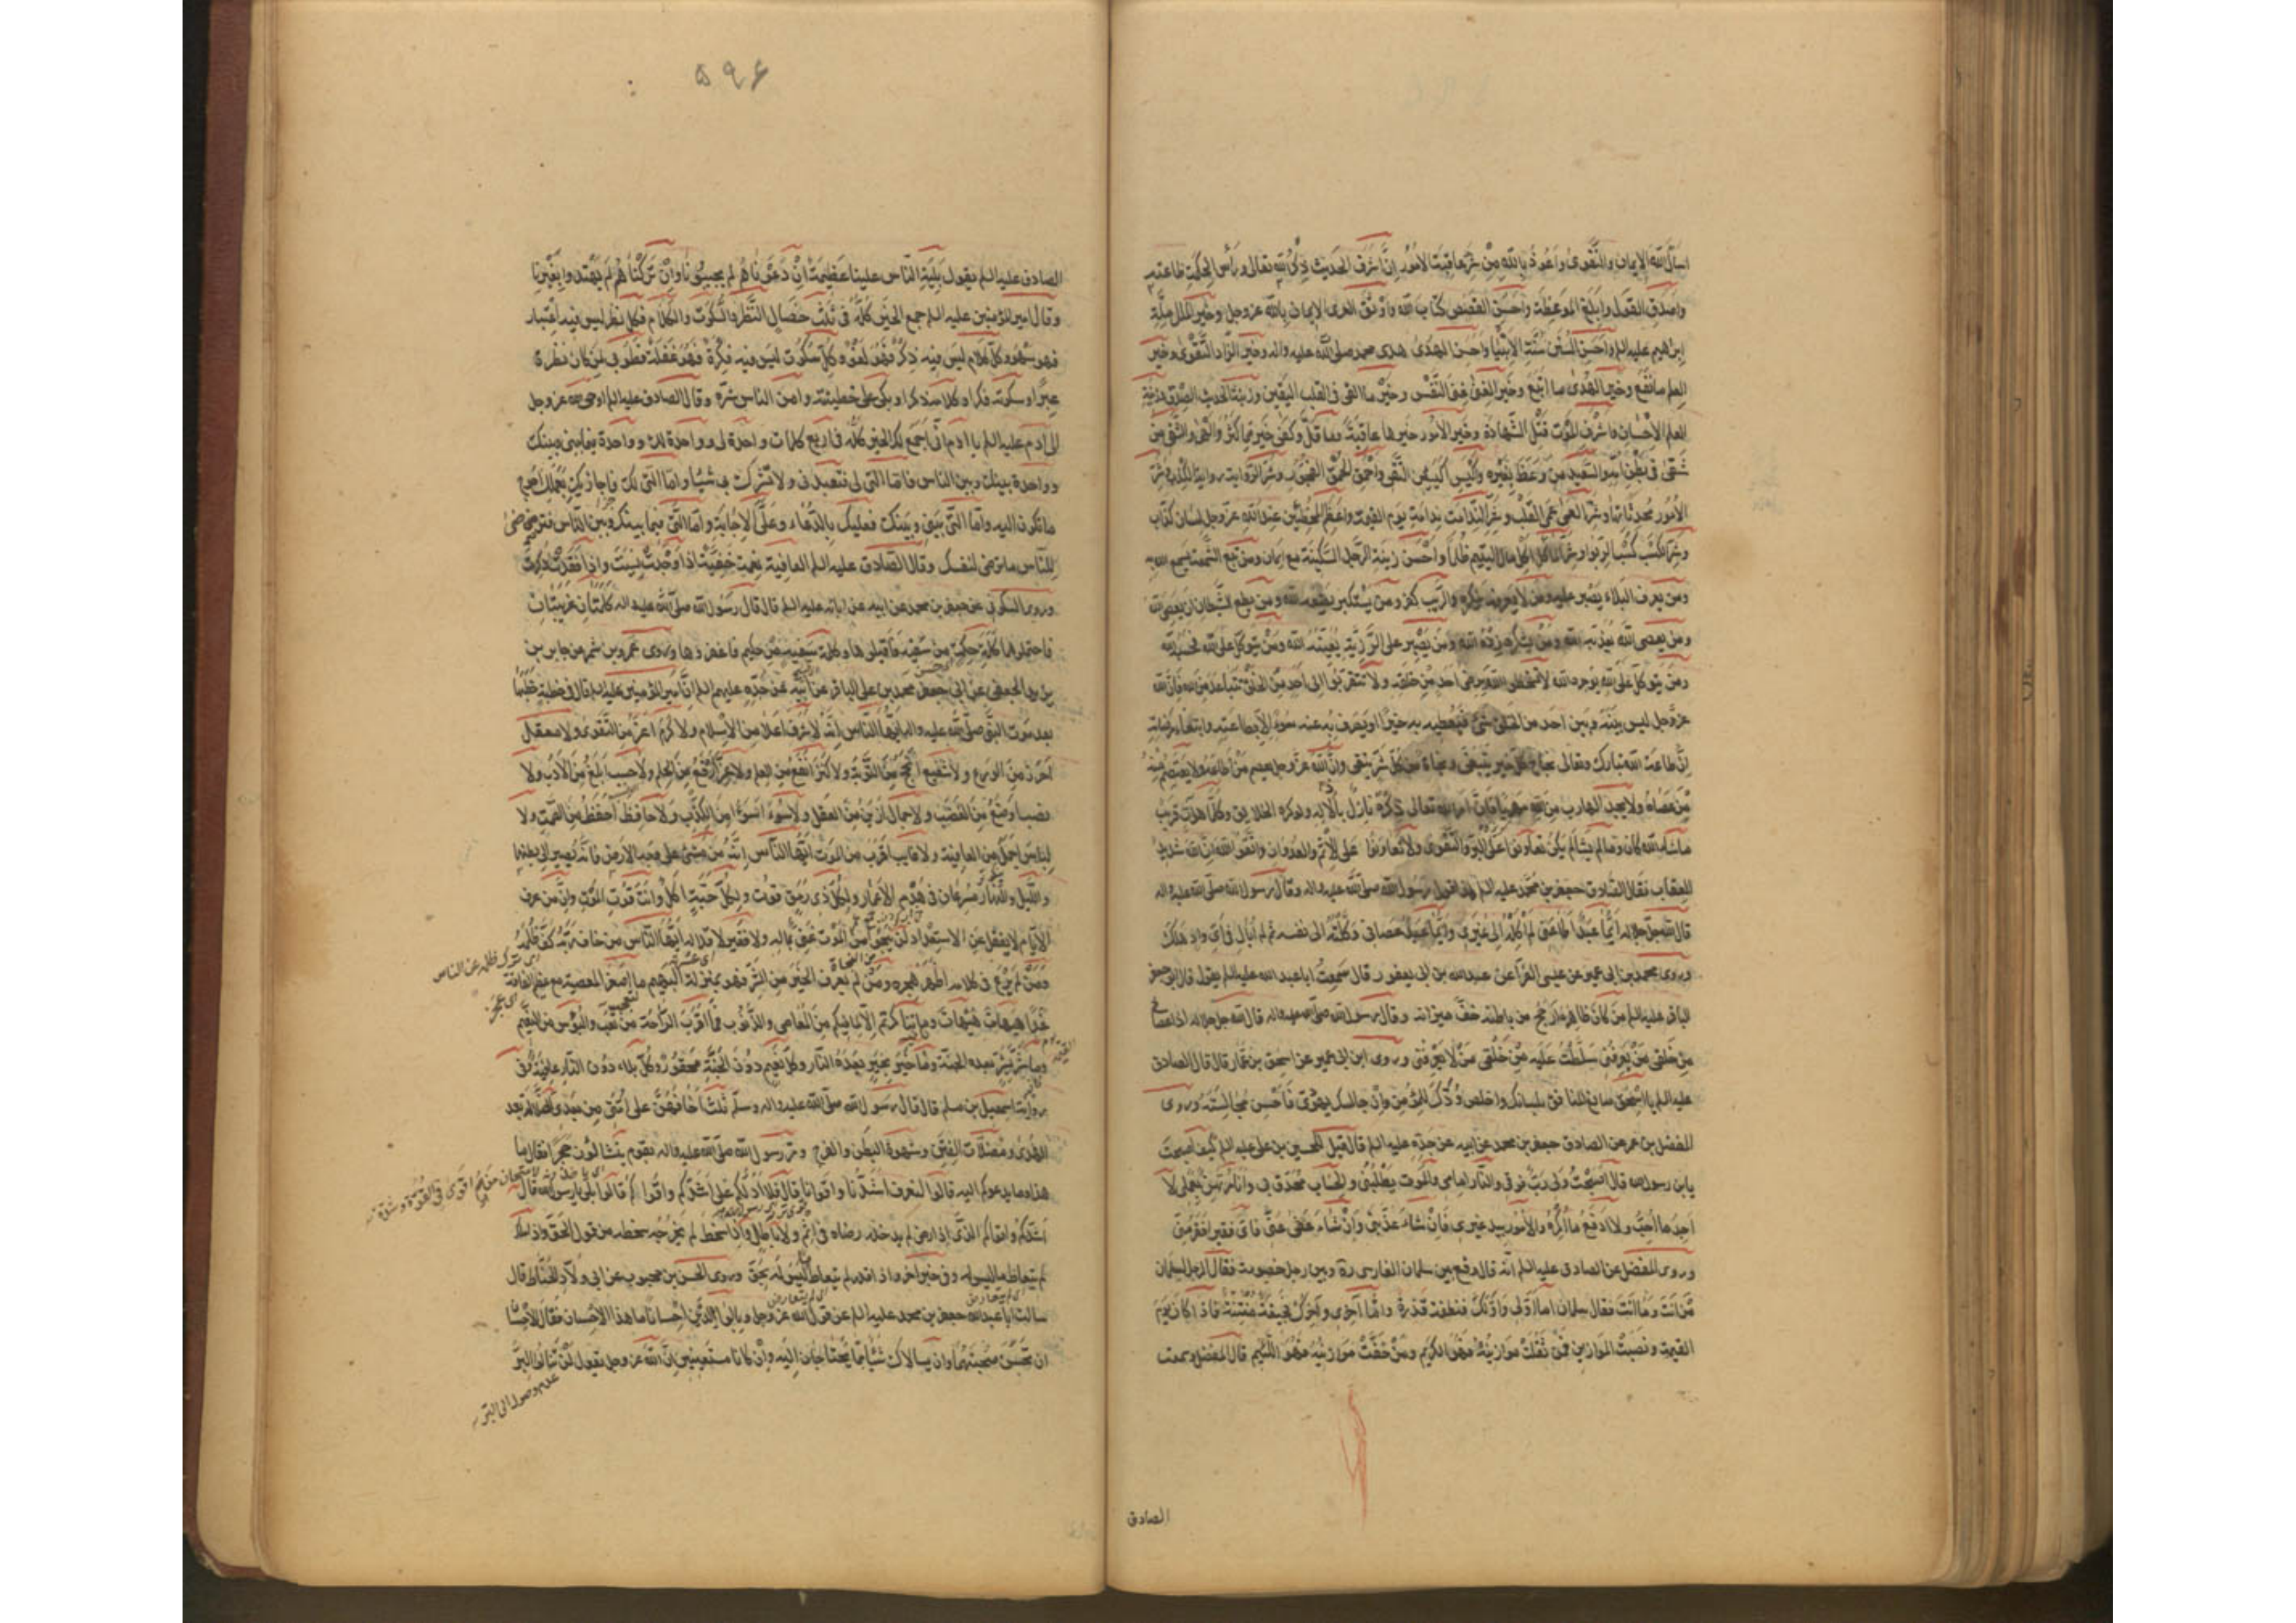 اسأل الله الإيمان والتقوى وأعوذ بالله من شر عاقبة الأمور إن أشرف الحديث ذكر الله تعالى ورأس الحكمة طاعته
وأصدق القول وأبلغ الموعظة وأحسن القصص كتاب الله وأوثق العرى الإيمان بالله عز وجل وخير الملل ملة
إبراهيم عليه السلم وأحسن السنن سنة الأنبيا وأحسن الهدى هدى محمد صلى الله عليه واله وخير الزاد التقوى وخير
العلم ما نفع وخير الهدى ما اتبع وخير الغنى غنى النفس وخير ما القي في القلب اليقين وزينة الحديث الصدق وزينة
العلم الإحسان وأشرف الموت قتل الشهادة وخير الأمور خيرها عاقبة وما قل وكفى خير مما كثر وألهى والشقي من
شقي في بطن أمه والسعيد من وعظ بغيره وأكيس الكيس التقى وأحمق الحمق الفجور وشر الرواية رواية الكذب وشر
الأمور محدثاتها وشر العمى عمى القلب وشر الندامة ندامة يوم القيمة وأعظم المخطئين عند الله عز وجل لسان كذاب
وشر الكسب كسب الربوا وشر المأكل أكل مال اليتيم ظلما وأحسن زينة الرجل السكينة مع إيمان ومن تتبع السمعة يسمع الله به
ومن يعرف البلاء يصبر عليه ومن لا يعرفه ينكره والريب كفر ومن يستكبر يضعه الله ومن يطع الشيطان يعص الله
ومن يعصي الله يعذبه الله ومن يشكره يزده الله ومن يصبر على الرزية يغيثه الله ومن يتوكل على الله فحسبه الله
ومن يتوكل على الله يوجره الله لا تسخطوا الله برضى أحد من خلقه ولا تتقربوا إلى أحد من الخلق بتباعد من الله فإن الله
عز وجل ليس بينه وبين أحد من الخلق شئ فيعطيه به خيرا أو يصرف به عنه سوء إلا بطاعته وابتغاء مرضاته
إن طاعة الله تبارك وتعالى نجاح كل خير يتبغى ونجاة من كل شر يتقى وإن الله عز وجل يعصم من أطاعه ولا يعتصم منه
من عصاه ولا يجد الهارب من الله مهربا فإن امر الله تعالى ذكره نازل بإذلاله ولو كره الخلايق وكلما هو آت قريب
ما شاء الله كان وما لم يشأ لم يكن تعاونوا على البر والتقوى ولا تعاونوا على الإثم والعدوان واتقوا الله إن الله شديد
العقاب فقال الصادق جعفر بن محمد عليه السلم هذا قول رسول الله صلى الله عليه واله وقال رسول الله صلى الله عليه واله
قال الله جل جلاله أيما عبد أطاعني لم أكله إلى غيري وأيما عبد عصاني وكلته إلى نفسه ثم لم أبال في أي واد هلك
وروى محمد بن ابي عمير عن عيسى الفرا عن عبد الله بن ابي يعفور قال سمعت ابا عبد الله عليه السلم يقول قال ابو جعفر
الباقر عليه السلم من كان ظاهره أرجح من باطنه خف ميزانه وقال رسول الله صلى الله عليه واله قال الله جل جلاله إذا عصاني
من خلقي من يعرفني سلطت عليه من خلقي من لا يعرفني وروى ابن ابي عمير عن اسحق بن عمار قال قال الصادق
عليه السلم يا اسحق صانع المنافق بلسانك وأخلص ودك للمؤمن وإن جالسك يهودي فأحسن مجالسته وروى
المفضل بن عمر عن الصادق جعفر بن محمد عن ابيه عن جده عليه السلم قال قيل للحسين بن علي عليه السلم كيف أصبحت
يا بن رسول الله قال أصبحت ولي رب فوقي والنار امامي والموت يطلبني والحساب محدق بي وأنا مرتهن بعملي لا
أجد ما أحب ولا أدفع ما أكره والأمور بيد غيري فإن شاء عذبني وإن شاء عفى عني فأي فقير أفقر مني
وروى المفضل عن الصادق عليه السلم انه قال وقع بين سلمان الفارسي ره وبين رجل خصومة فقال الرجل لسلمان
من أنت وما أنت فقال سلمان أما أولي وأولك فنطفة قذرة وأما آخري وآخرك فجيفة منتنة فاذا كان يوم
القيمة ونصبت الموازين فمن ثقلت موازينه فهو الكريم ومن خفت موازينه فهو اللئيم قال المفضل وسمعت
الصادق
۵۹۶
الصادق عليه السلم يقول بلية الناس علينا عظيمة إن دعوناهم لم يجيبونا وإن تركناهم لم يهتدوا بغيرنا
وقال امير المؤمنين عليه السلم جمع الخير كله في ثلث خصال النظر والسكوت والكلام فكل نظر ليس فيه اعتبار
فهو سهو وكل كلام ليس فيه ذكر فهو لغو وكل سكوت ليس فيه فكرة فهو غفلة فطوبى لمن كان نظره
عبرا وسكوته فكرا وكلامه ذكرا وبكى على خطيئته وامن الناس شره وقال الصادق عليه السلم اوحى الله عز وجل
إلى آدم عليه السلم يا ادم اني أجمع لك الخير كله في اربع كلمات واحدة لي وواحدة لك وواحدة فيما بيني وبينك
وواحدة بينك وبين الناس فاما التي لي فتعبدني ولا تشرك بي شيئا واما التي لك فاجازيك بعملك أحوج
ما تكون اليه واما التي بيني وبينك فعليك بالدعاء وعلي الإجابة واما التي فيما بينك وبين الناس فترضى
للناس ما ترضى لنفسك وقال الصادق عليه السلم العافية نعمة خفية إذا وجدت نسيت وإذا فقدت ذكرت
وروى السكوني عن جعفر بن محمد عن ابيه عن ابائه عليه السلم قال قال رسول الله صلى الله عليه واله كلمتان غريبتان
فاحتملوهما كلمة حكمة من سفيه فاقبلوها وكلمة سفيه من حكيم فاغفروها وروى عمرو بن شمر عن جابر بن
يزيد الجعفي عن ابي جعفر محمد بن علي الباقر عن ابيه عن جده عليهم السلم ان امير المؤمنين عليه السلم قال في خطبة خطبها
بعد موت النبي صلى الله عليه واله ايها الناس إنه لا شرف أعلا من الإسلام ولا كرم أعز من التقوى ولا معقل
أحرز من الورع ولا شفيع أنجح من التوبة ولا كنز أنفع من العلم ولا عز أرفع من الحلم ولا حسب أبلغ من الأدب ولا
نصب أوضع من الغضب ولا جمال أزين من العقل ولا سوءة أسوأ من الكذب ولا حافظ أحفظ من الصمت ولا
لباس أجمل من العافية ولا غايب أقرب من الموت ايها الناس إنه من مشى على وجه الارض فانه يصير إلى بطنها
والليل والنهار مسرعان في هدم الأعمار ولكل ذي رمق قوت ولكل حبة آكل وأنت قوت الموت وإن من عرف
الأيام لا يغفل عن الاستعداد لن ينجو من الموت غني بماله ولا فقير لإقلاله أيها الناس من خاف ربه كف ظلمه
ومن لم يرع في كلامه أظهر هجره ومن لم يعرف الخير من الشر فهو بمنزلة البهيم ما أصغر المصيبة مع عظم الفاقة
غدا هيهات هيهات وما تناكرتم إلا لما فيكم من المعاصي والذنوب فما أقرب الراحة من التعب والبؤس من النعيم
وما شر بشر بعده الجنة وما خير بخير بعده النار وكل نعيم دون الجنة محقور وكل بلاء دون النار عافية وفي
رواية اسمعيل بن مسلم قال قال رسول الله صلى الله عليه واله وسلم ثلث أخافهن على امتي من بعدي الضلالة بعد
الهدى ومضلات الفتن وشهوة البطن والفرج ومر رسول الله صلى الله عليه واله بقوم يتشالون حجرا فقال ما
هذا وما يدعوكم اليه قالوا لنعرف أشدنا وأقوانا قال أفلا أدلكم على أشدكم وأقواكم قالوا بلى يا رسول الله قال
أشدكم وأقواكم الذي إذا رضي لم يدخله رضاه في إثم ولا باطل وإذا سخط لم يخرجه سخطه من قول الحق وإذا ملك
لم يتعاط ما ليس له وفي خبر آخر وإذا قدر لم يتعاط ما ليس له بحق وروى الحسن بن محبوب عن ابي ولاد الحناط قال
سالت ابا عبد الله جعفر بن محمد عليه السلم عن قول الله عز وجل وبالوالدين إحسانا ما هذا الاحسان فقال الاحسان
ان تحسن صحبتهما وان لا يسالاك شيئا مما يحتاجان إليه وإن كانا مستغنيين إن الله عز وجل يقول لن تنالوا البر